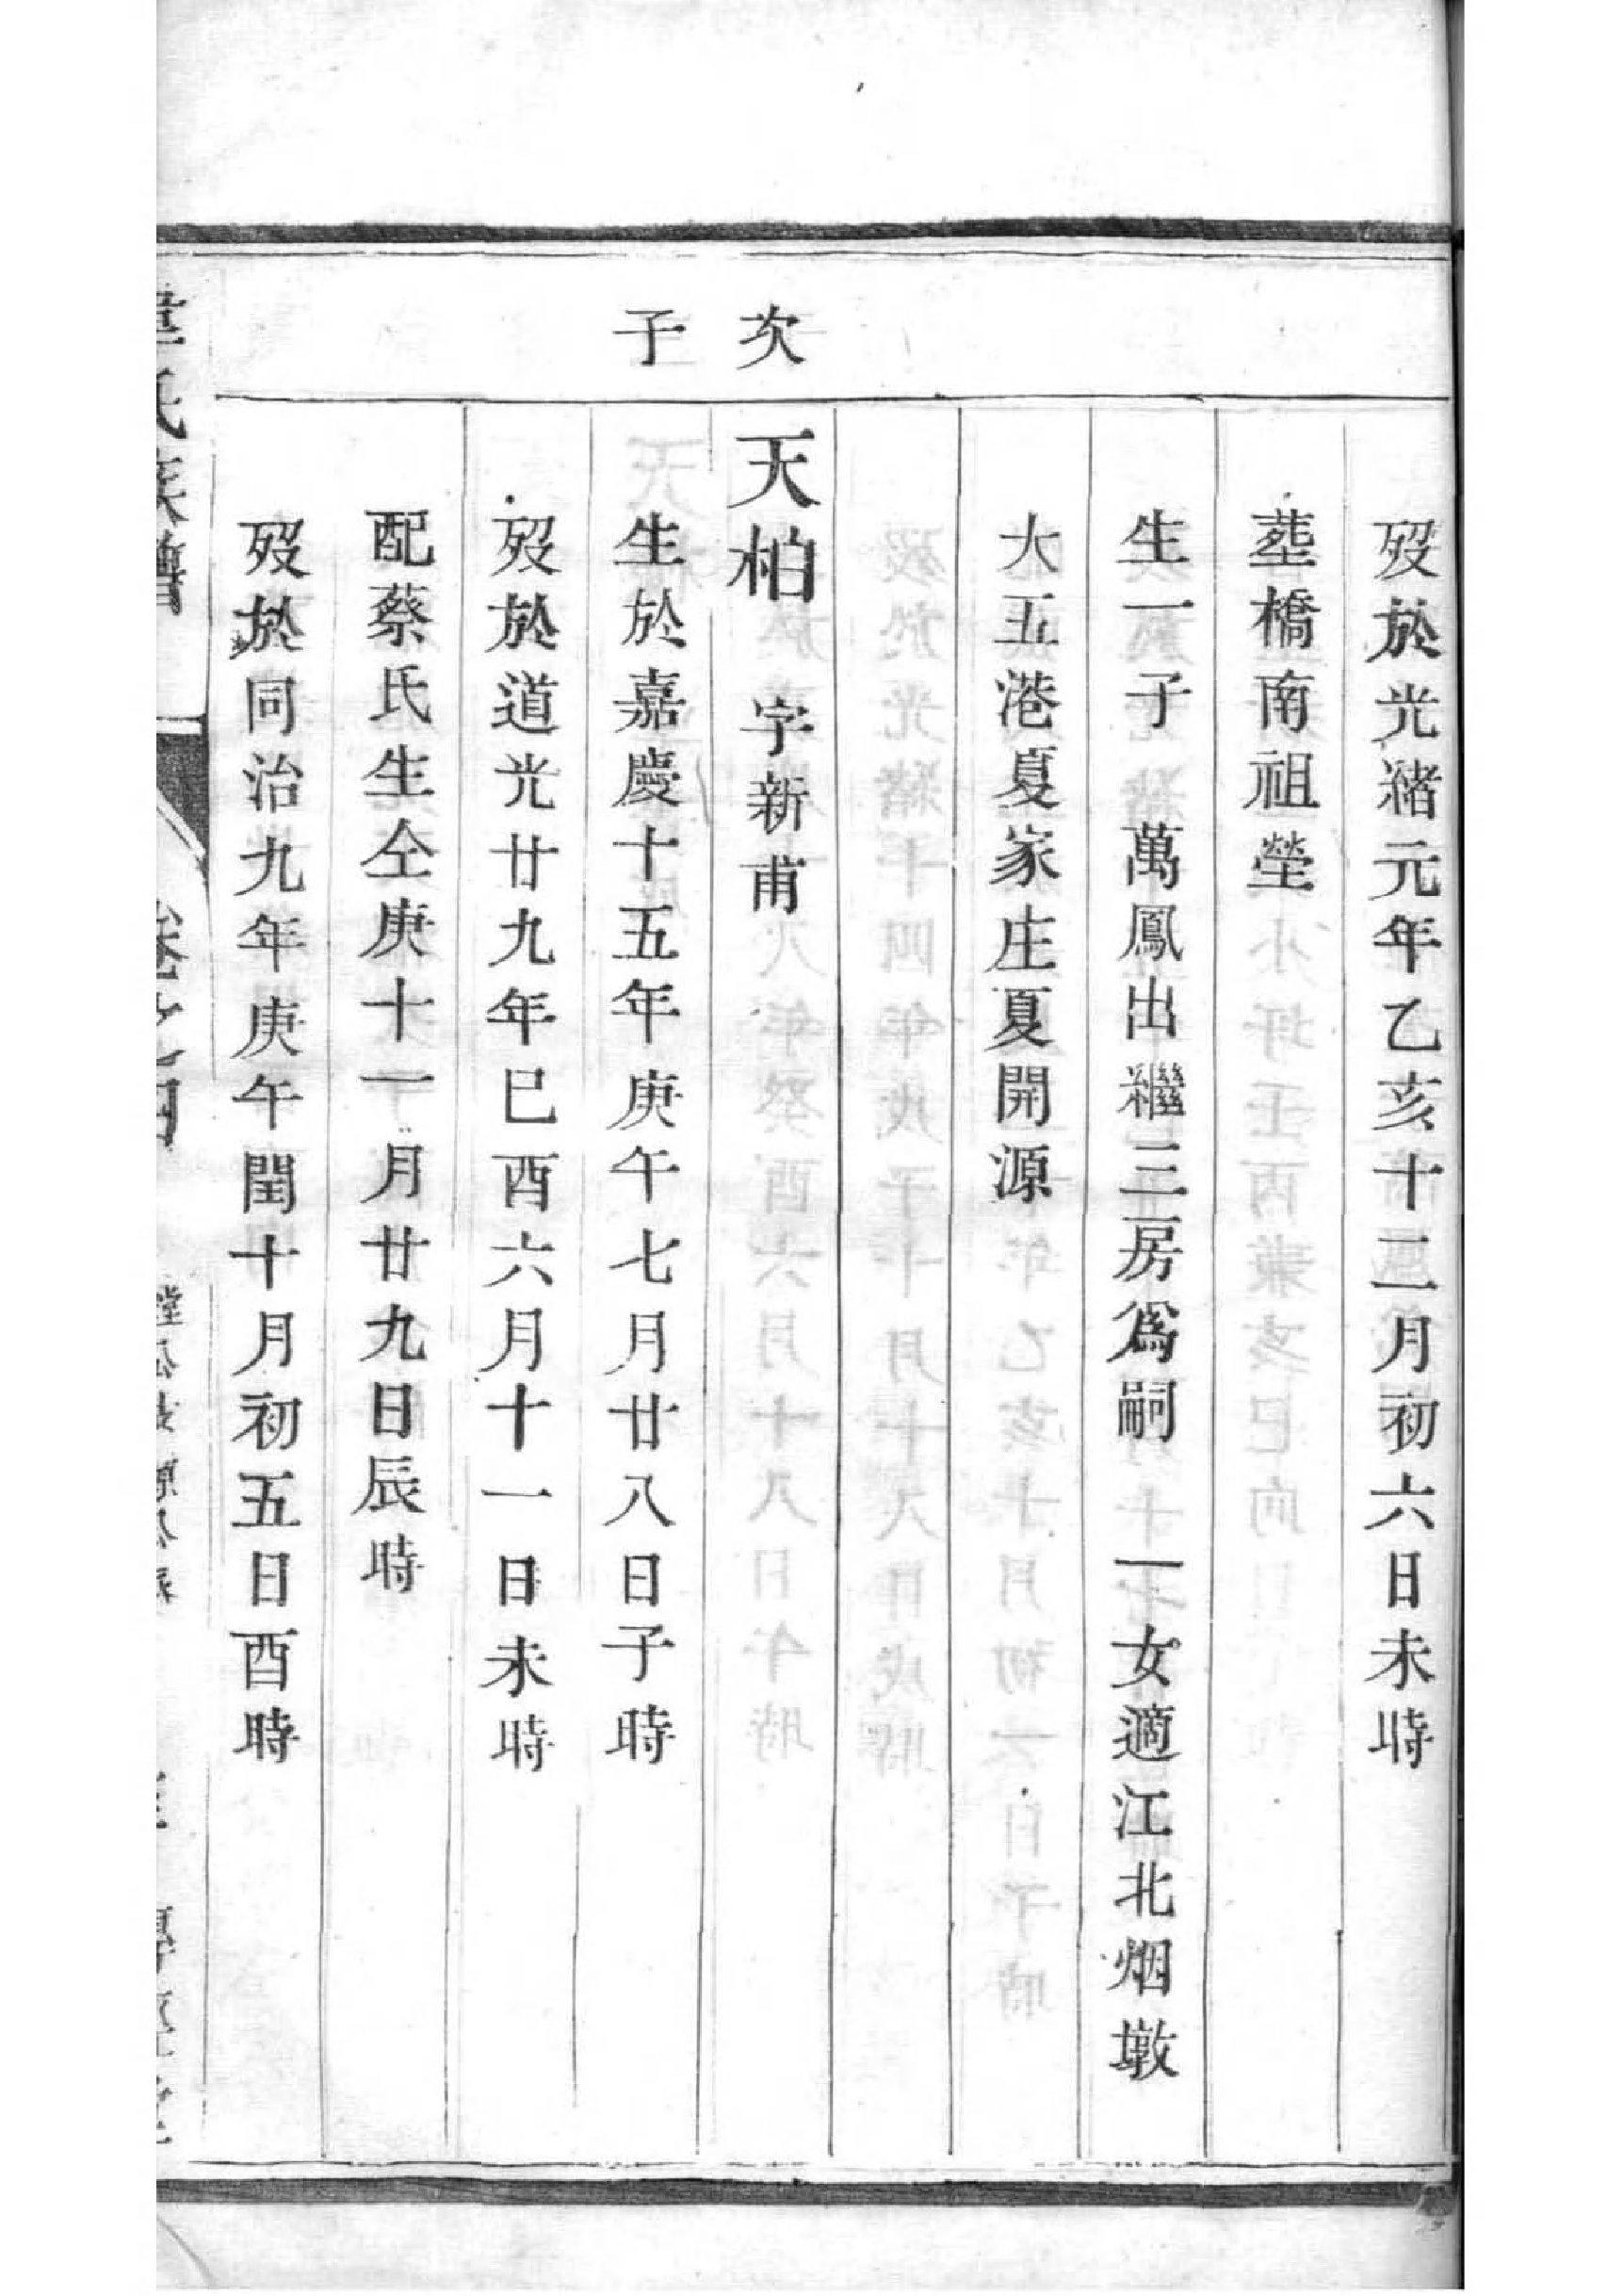 歿於光緒元年乙亥十二月初六日未時
葬橋南祖塋
生一子 萬鳳出繼三房爲嗣 一女適江北烟墩
大五港夏家庄夏開源
次子
天柏 字新甫
生於嘉慶十五年庚午七月廿八日子時
歿於道光廿九年巳酉六月十一日未時
配蔡氏生仝庚十一月廿九日辰時
歿於同治九年庚午閏十月初五日酉時
氏族譜
卷之四